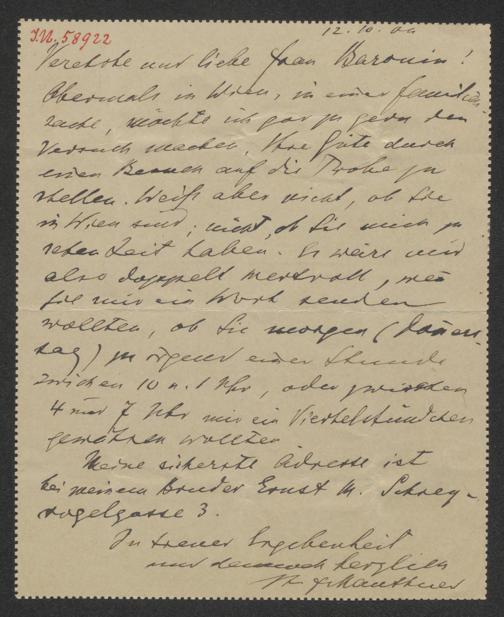 I.N. 58922
12.10.
Verehrte und liebe Frau Baronin!
Abermals in Wien, in einer Familien-
sache, möchte ich gar zu gern den
Versuch machen, Ihre Güte durch
einen Besuch auf die Probe zu
stellen. Weiß aber nicht, ob Sie
in Wien sind; nicht, ob Sie mich zu
sehen Zeit haben. Es wäre mir
also doppelt wertvoll, wenn
Sie mir ein Wort senden
wollten, ob Sie morgen (Donners-
tag) zu irgend einer Stunde
zwischen 10 u. 1 Uhr, oder zwischen
4 und 7 Uhr mir ein Viertelstündchen
gewähren wollten.
Meine sicherste Adresse ist
bei meinem Bruder Ernst M. Schrey-
vogelgasse 3.
In treuer Ergebenheit
und dennoch herzlich
Ihr FMauthner